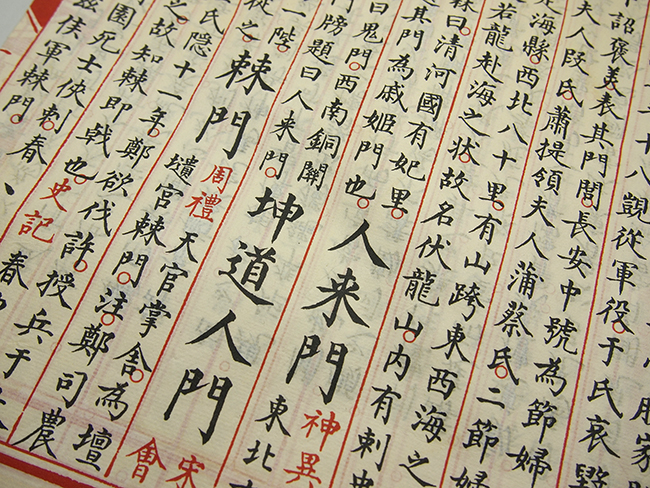 十八覬從軍役于氏哀毀
下詔褒美表其門閭長安中號為節婦
夫人段氏蕭提領夫人蒲蔡氏二節婦
海縣西北八十里有山跨東西海之
若龍赴海之状故名伏龍山内有刺史
曰清河國有妃里
其門為戚姬門也
人来門
神異
東北
曰鬼門西南銅關
門牓題曰人来門
坤道人門
宋會
一陛
從之
棘門
周禮
天官掌舍為壇
壝官棘門注鄭司農
氏隱十一年鄭欲伐許授兵于
之故知棘即戟也
史記
春
園死士俠刺春
兹侯軍棘門